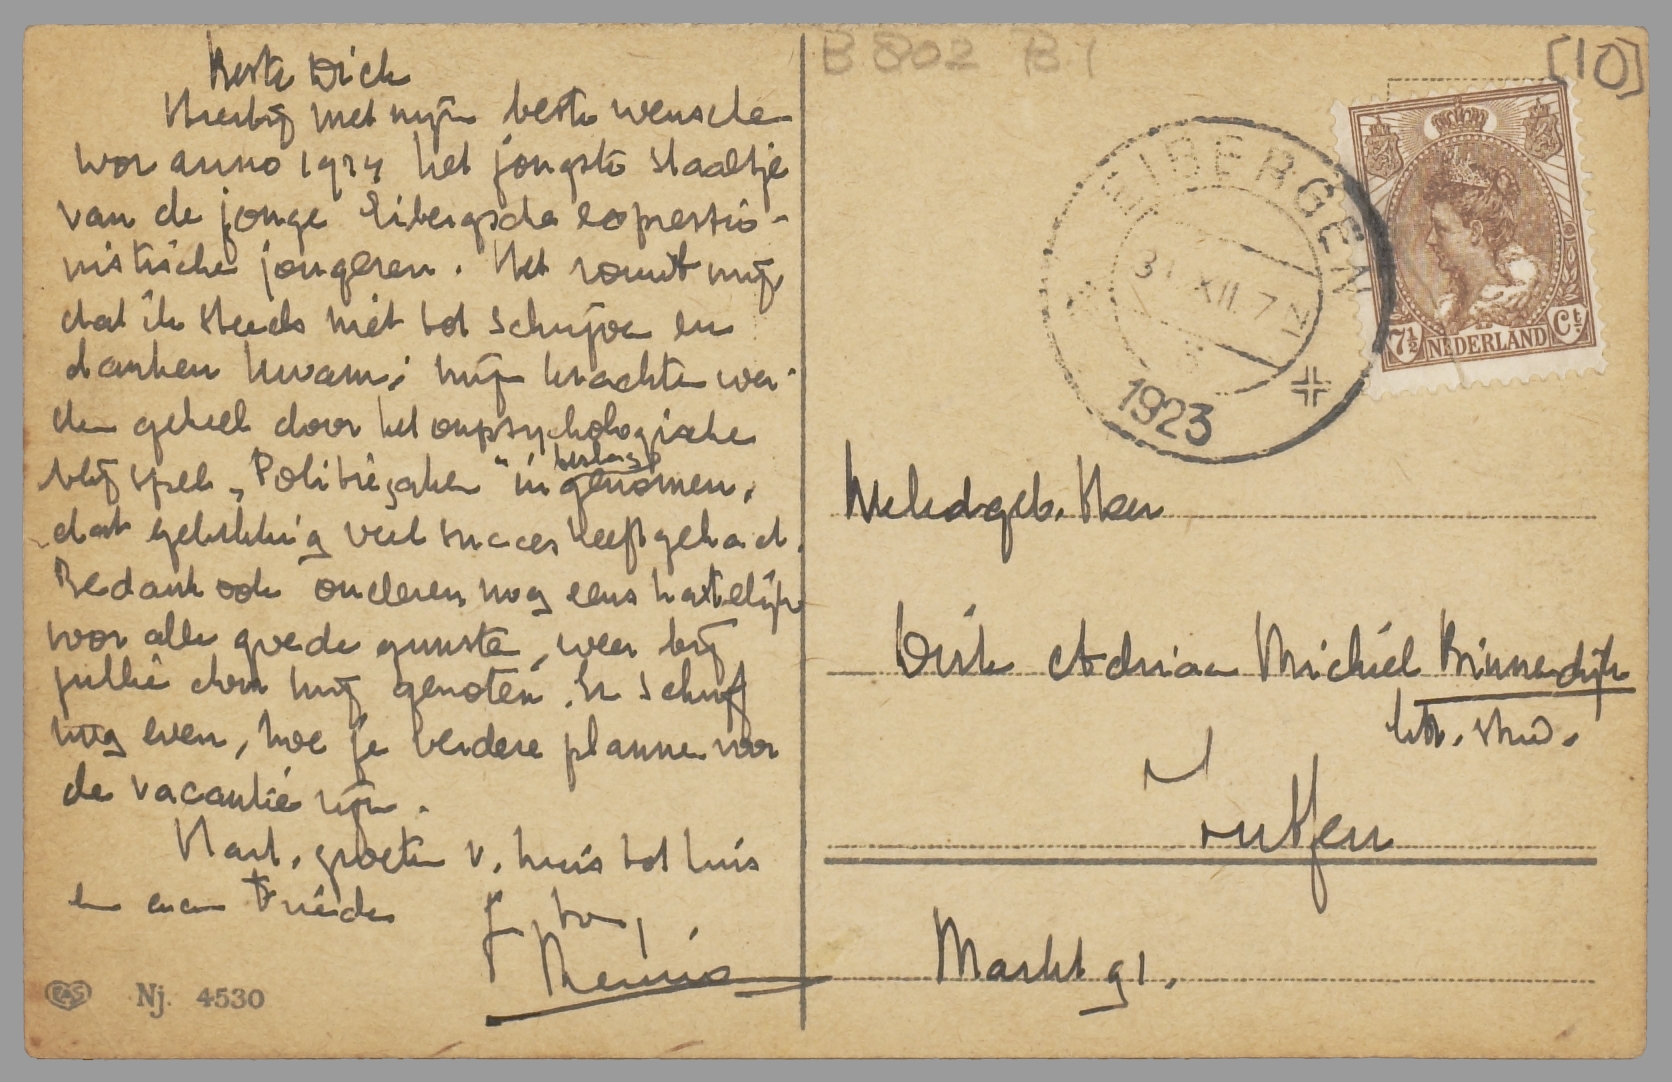 Beste Dick
Hierbij met mijn beste wensche
voor anno 1924 het jongste staaltje
van de jonge Eibergsche expressio-
nistische jongeren. Het spuit mij
dat ik steeds niet tot schrijven en
danken kwam; mijn krachten wer-
den geheel door het onpsychologische
blijspel „Politiezaken" in beslag genomen,
dat gelukkig veel succes heeft gehad.
Bedank ook ouderen nog eens hartelijk
voor alle goede gunste, weer bij
jullie door mij genoten. En schrijf
nog even, hoe je verdere planne voor
de vacantie zijn.
Hart. groeten v. huis tot huis
en een
Menno
EAS Nj. 4530
B 802 B 1
[10]
EIBERGEN
31.XII.7
1923
7½ NEDERLAND Ct
Weledgeb. Heer
Dirk Adriaan Michiel Binnendijk
litt. stud.
Zutfen
Markt 91.